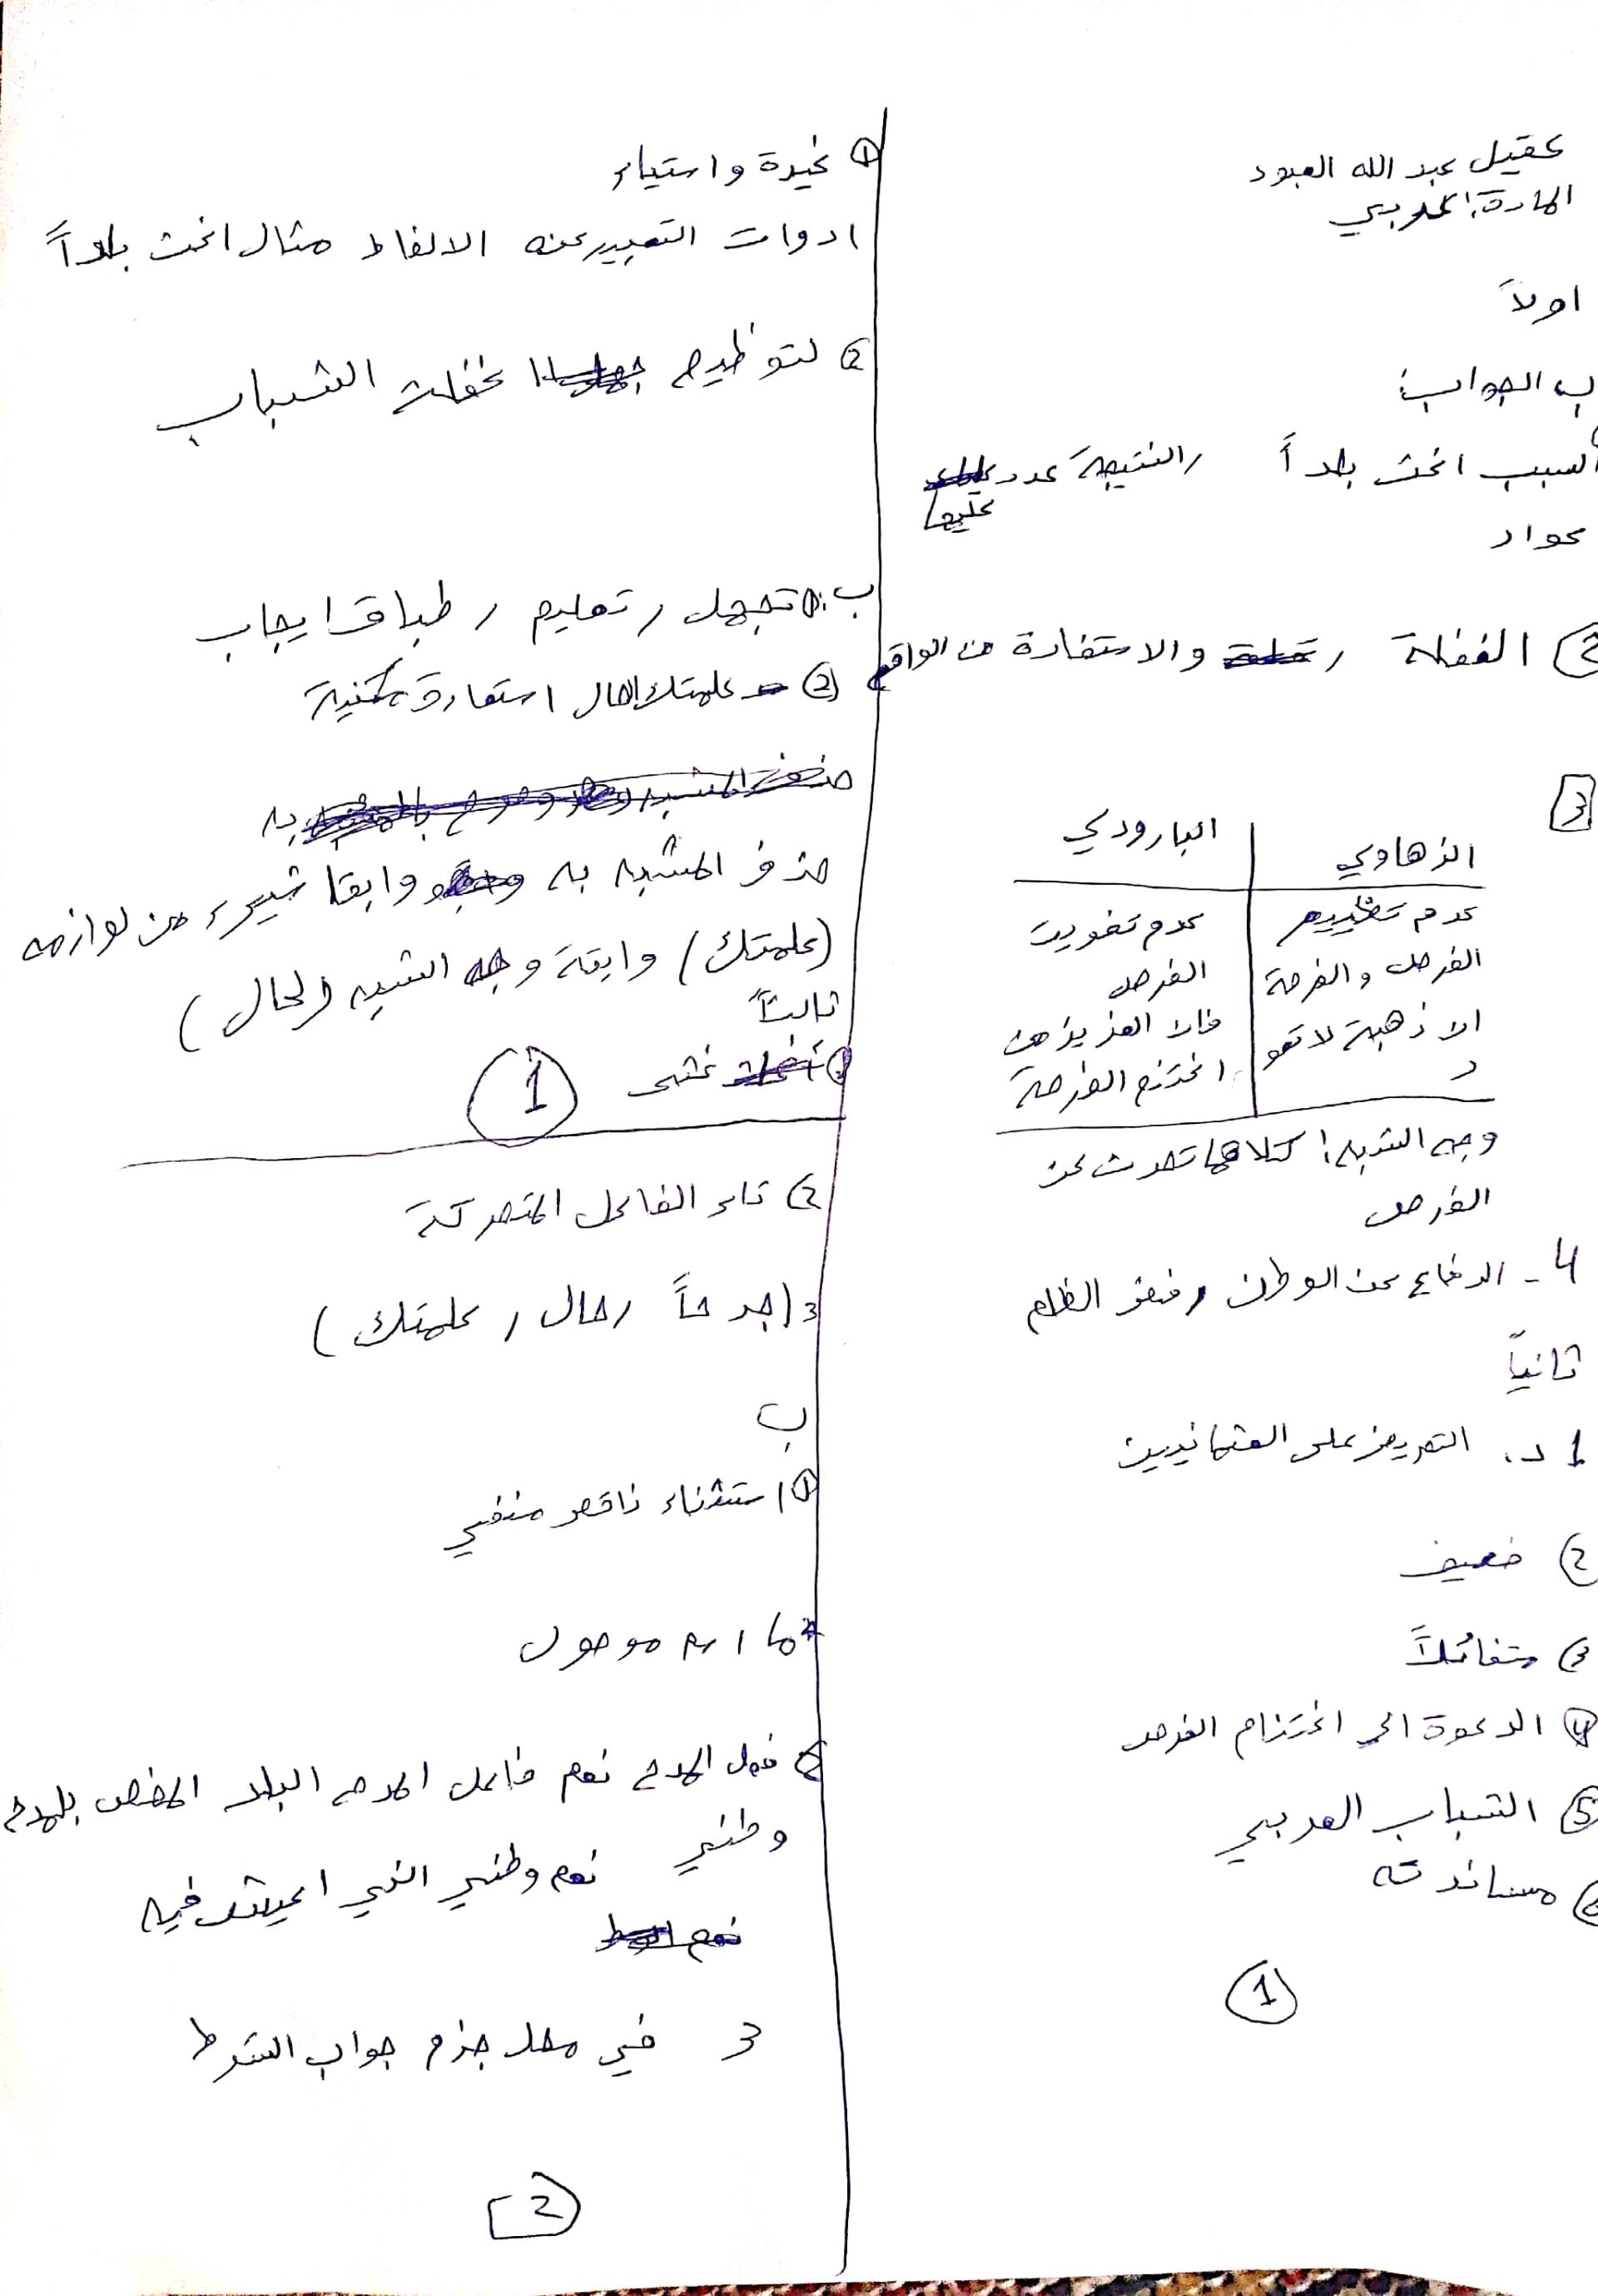 عقيل عبد الله العبود
المادة: عربي
اولاً
ب الجواب:
السبب اخث بلداً / النتيجة عدد عليها
عواد
② الغفلة / والاستفادة من الواقع
3
الزهاوي
البارودي
عدم تضييع
الفرص والفرصة
الا ذهبة لا تعو
د
عدم تفويت
الفرص
فان العزيز من
اغتنم الفرصة
وجه الشبه: كلاهما تحدث عن
الفرص
4- الدفاع عن الوطن رفض الظلم
ثانياً
1 د. التحريض على العثمانيين
② ضعيف
③ متفائلاً
④ الدعوة الى اغتنام الفرص
⑤ الشباب العربي
مساندته
①
① غيرة واستياء
ادوات التعبير عنه الالفاظ مثال اخث بلداً
② لتوظيح غفلت الشباب
ب: ① تجهل / تعليم / طباق ايجاب
② علمتك الحال استعارة مكنية
به
حذف المشبه به وابقا شيىء من لوازمه
(علمتك) وابقة وجه الشبه (الحال)
ثالثاً
① غشى
①
② تاء الفاعل المتحركة
3 (جدحاً / حال / علمتك)
ب
① استثناء ناقص منفي
* ما اسم موصول
② فعل المدح نعم فاعل المدح البلد المخصص بلمدح
وطني نعم وطني الذي اعيش فيه
3 في محل جزم جواب الشرط
2